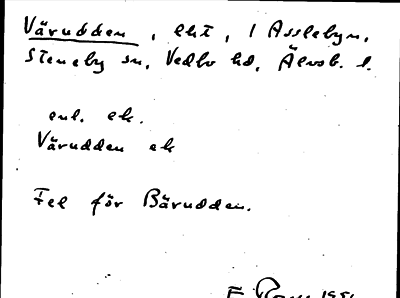 Värudden, lht, 1 Asslebyn,
Steneby sn, Vedbo hd, Älvsb. l.
enl. ek.
Värudden ek
Fel för Bärudden.
F